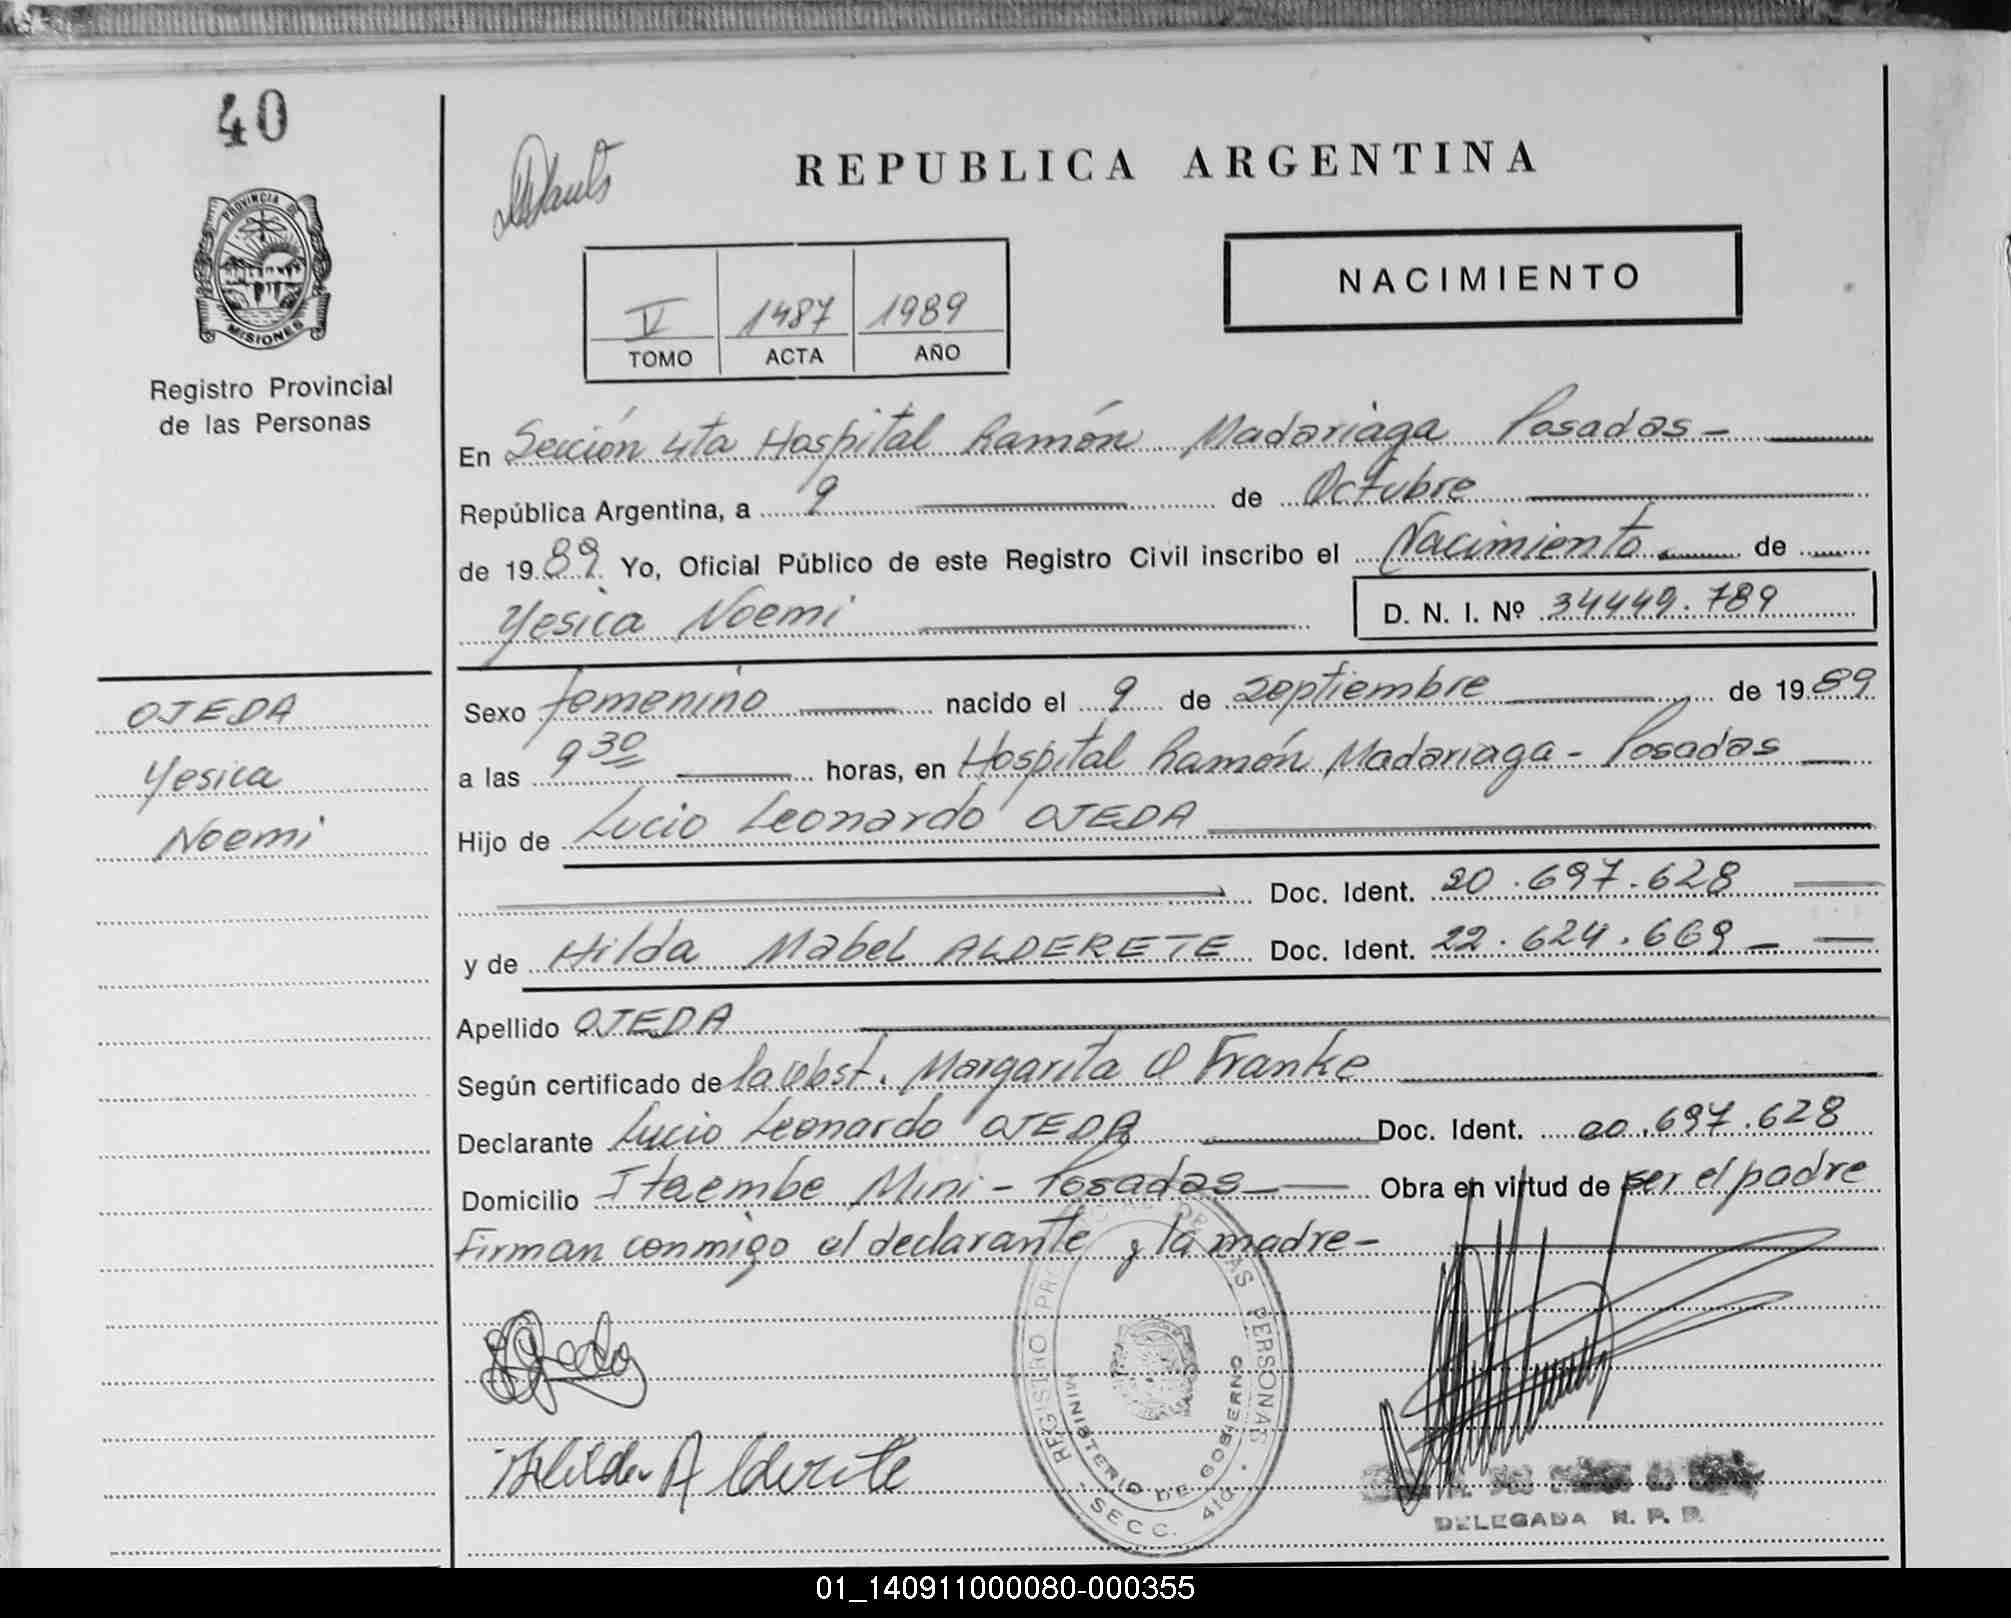 40
REPUBLICA ARGENTINA
PROVINCIA DE
MISIONES
Registro Provincial
de las Personas
NACIMIENTO
V 1487 1989
TOMO ACTA AÑO
En Sección 4ta Hospital Ramón Madariaga Posadas-
República Argentina, a 9 de Octubre
de 1989. Yo, Oficial Público de este Registro Civil inscribo el Nacimiento de
Yesica Noemi D. N. I. Nº 34449.789
OJEDA
Yesica
Noemi
Sexo femenino nacido el 9 de Septiembre de 1989
a las 9 30 horas, en Hospital Ramón Madariaga - Posadas
Hijo de Lucio Leonardo OJEDA
Doc. Ident. 20.697.628
y de Hilda Mabel ALDERETE Doc. Ident. 22.624.669
Apellido OJEDA
Según certificado de la obst. Margarita O Franke
Declarante Lucio Leonardo OJEDA Doc. Ident. 20.697.628
Domicilio Itaembe Mini - Posadas Obra en virtud de ser el padre
Firman conmigo el declarante y la madre-
Hilda Alderete
REGISTRO PROVINCIAL DE LAS PERSONAS
MINISTERIO DE GOBIERNO
SECC. 4ta.
DELEGADA R. P. P.
01_140911000080-000355